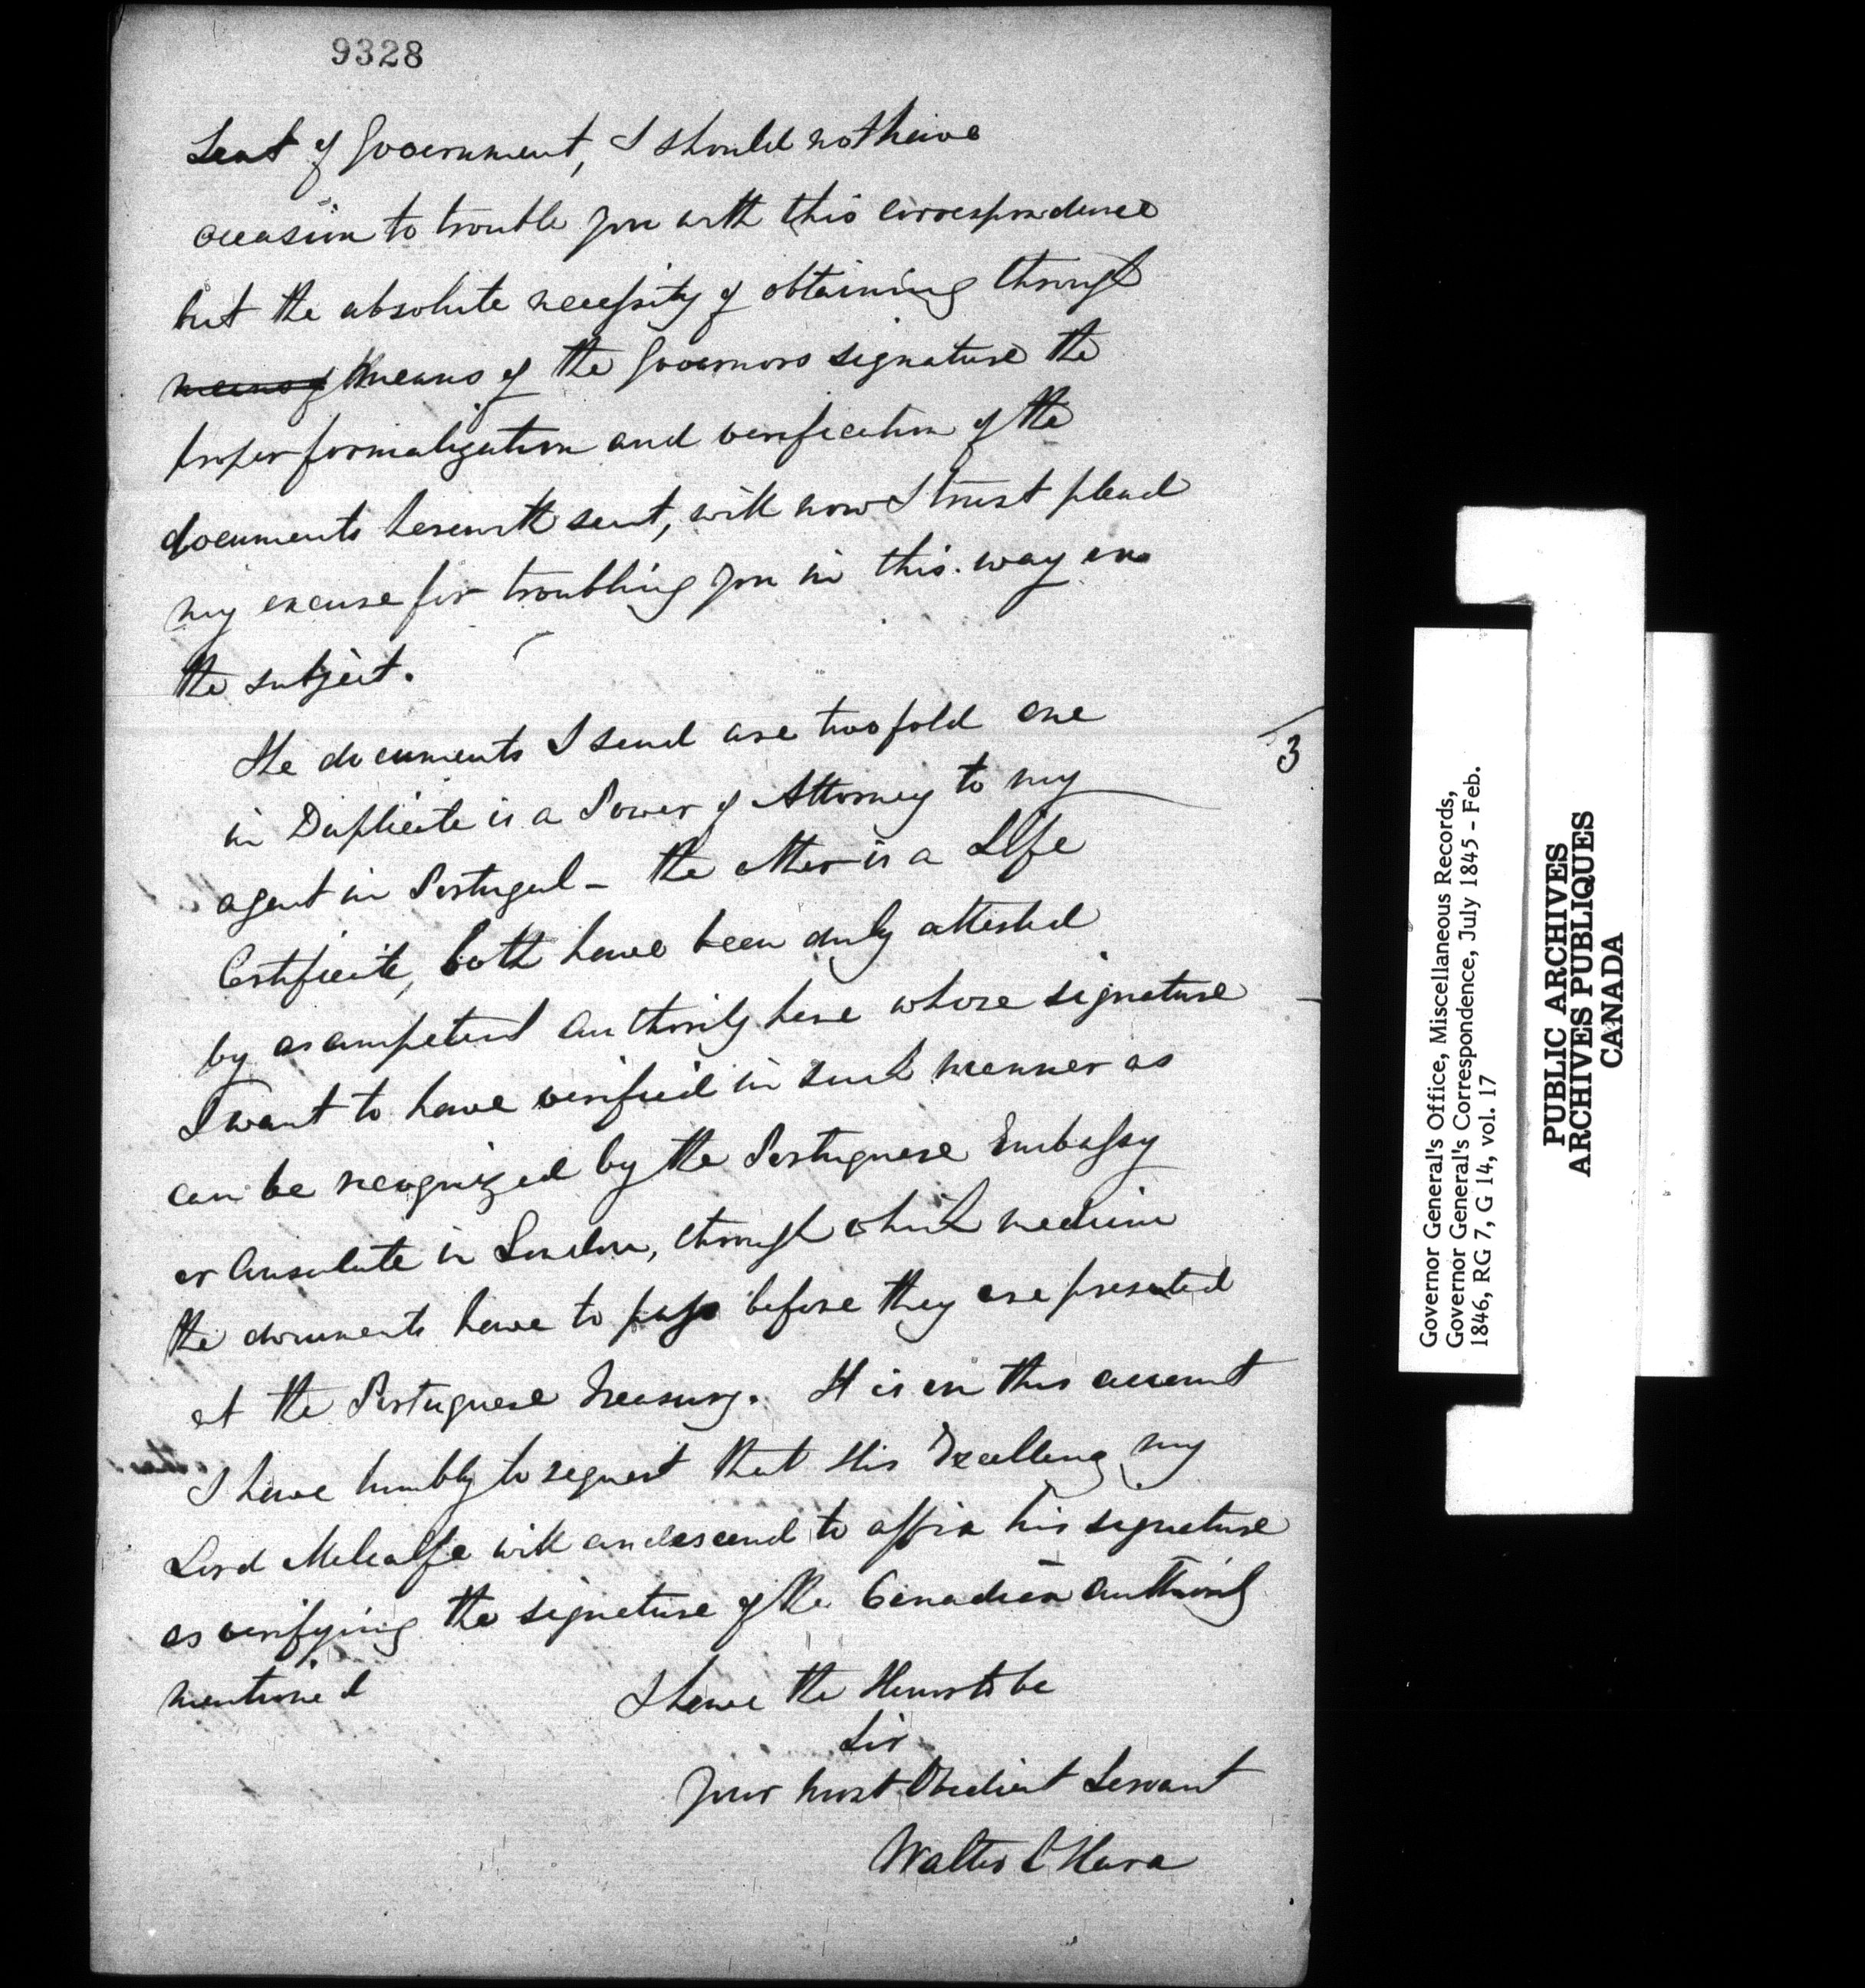 9328
Seat of Government, I should not have
occasion to trouble you with this correspondence
but the absolute necessity of obtaining through
means of means of the Governors signature the
proper formalization and verification of the
documents herewith sent, will now I trust plead
my excuse for troubling you in this way on
the subject.
The documents I send are twofold one
in Duplicate is a Power of Attorney to my
3
agent in Portugal - the other is a Life
Certificate, both have been duly attested
by a competent authority here whose signature
I want to have verified in such manner as
can be recognized by the Portuguese Embassy
or Consulate in London, through which medium
the documents have to pass before they are presented
at the Portuguese Treasury. It is on this account
I have humbly to request that His Excellency my
Lord Metcalfe will condescend to affix his signature
as verifying the signature of the Canadian Authority
mentioned
I have the Honor to be
Sir
Your most Obedient Servant
Walter O'Hara
Governor General's Office, Miscellaneous Records,
Governor General's Correspondence, July 1845 - Feb.
1846, RG 7, G 14, vol. 17
PUBLIC ARCHIVES
ARCHIVES PUBLIQUES
CANADA